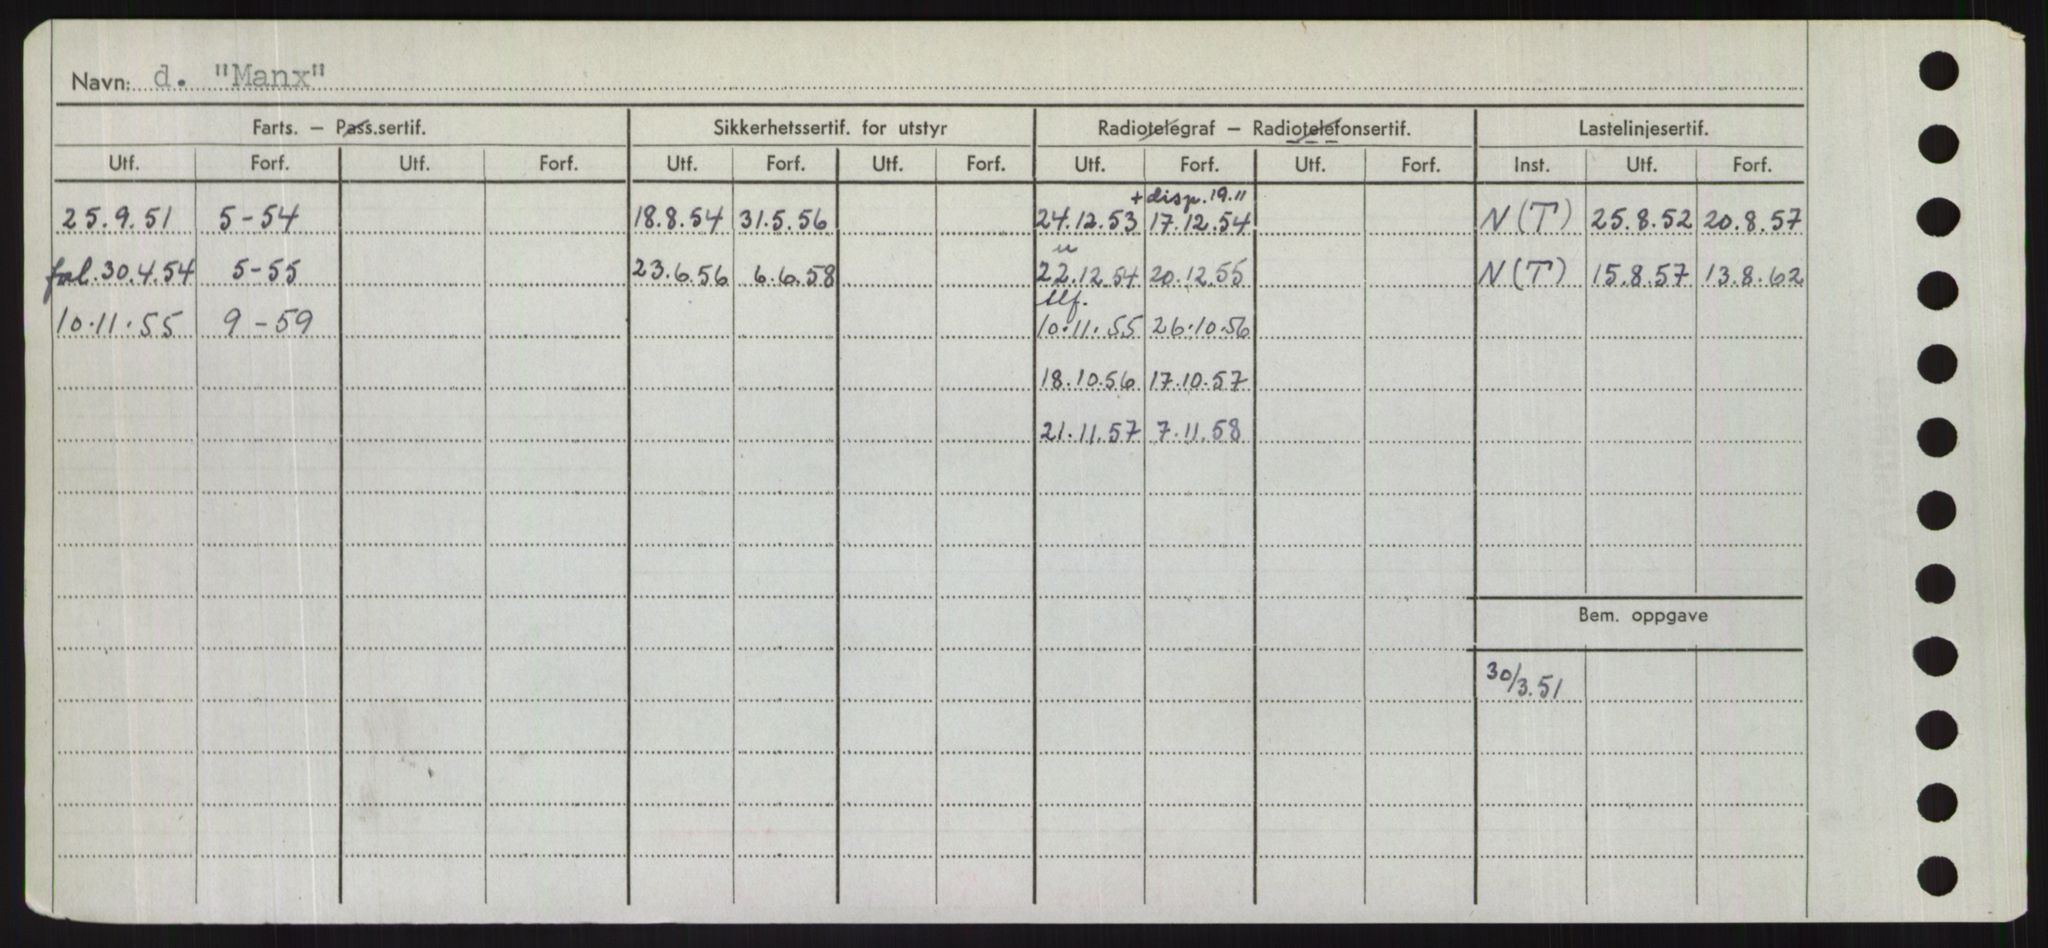 Navn: d. "Manx"
Farts. – Pass.sertif. Sikkerhetssertif. for utstyr Radiotelegraf – Radiotelefonsertif. Lastelinjesertif.
Utf. Forf. Utf. Forf. Utf. Forf. Utf. Forf. Utf. Forf. Utf. Forf. Inst. Utf. Forf.
+ disp. 19.11
25.9.51 5-54 18.8.54 31.5.56 24.12.53 17.12.54 N(T) 25.8.52 20.8.57
u
30.4.54 5-55 23.6.56 6.6.58 22.12.54 20.12.55 N(T) 15.8.57 13.8.62
tlf.
10.11.55 9-59 10.11.55 26.10.56
18.10.56 17.10.57
21.11.57 7.11.58
Bem. oppgave
30/3.51